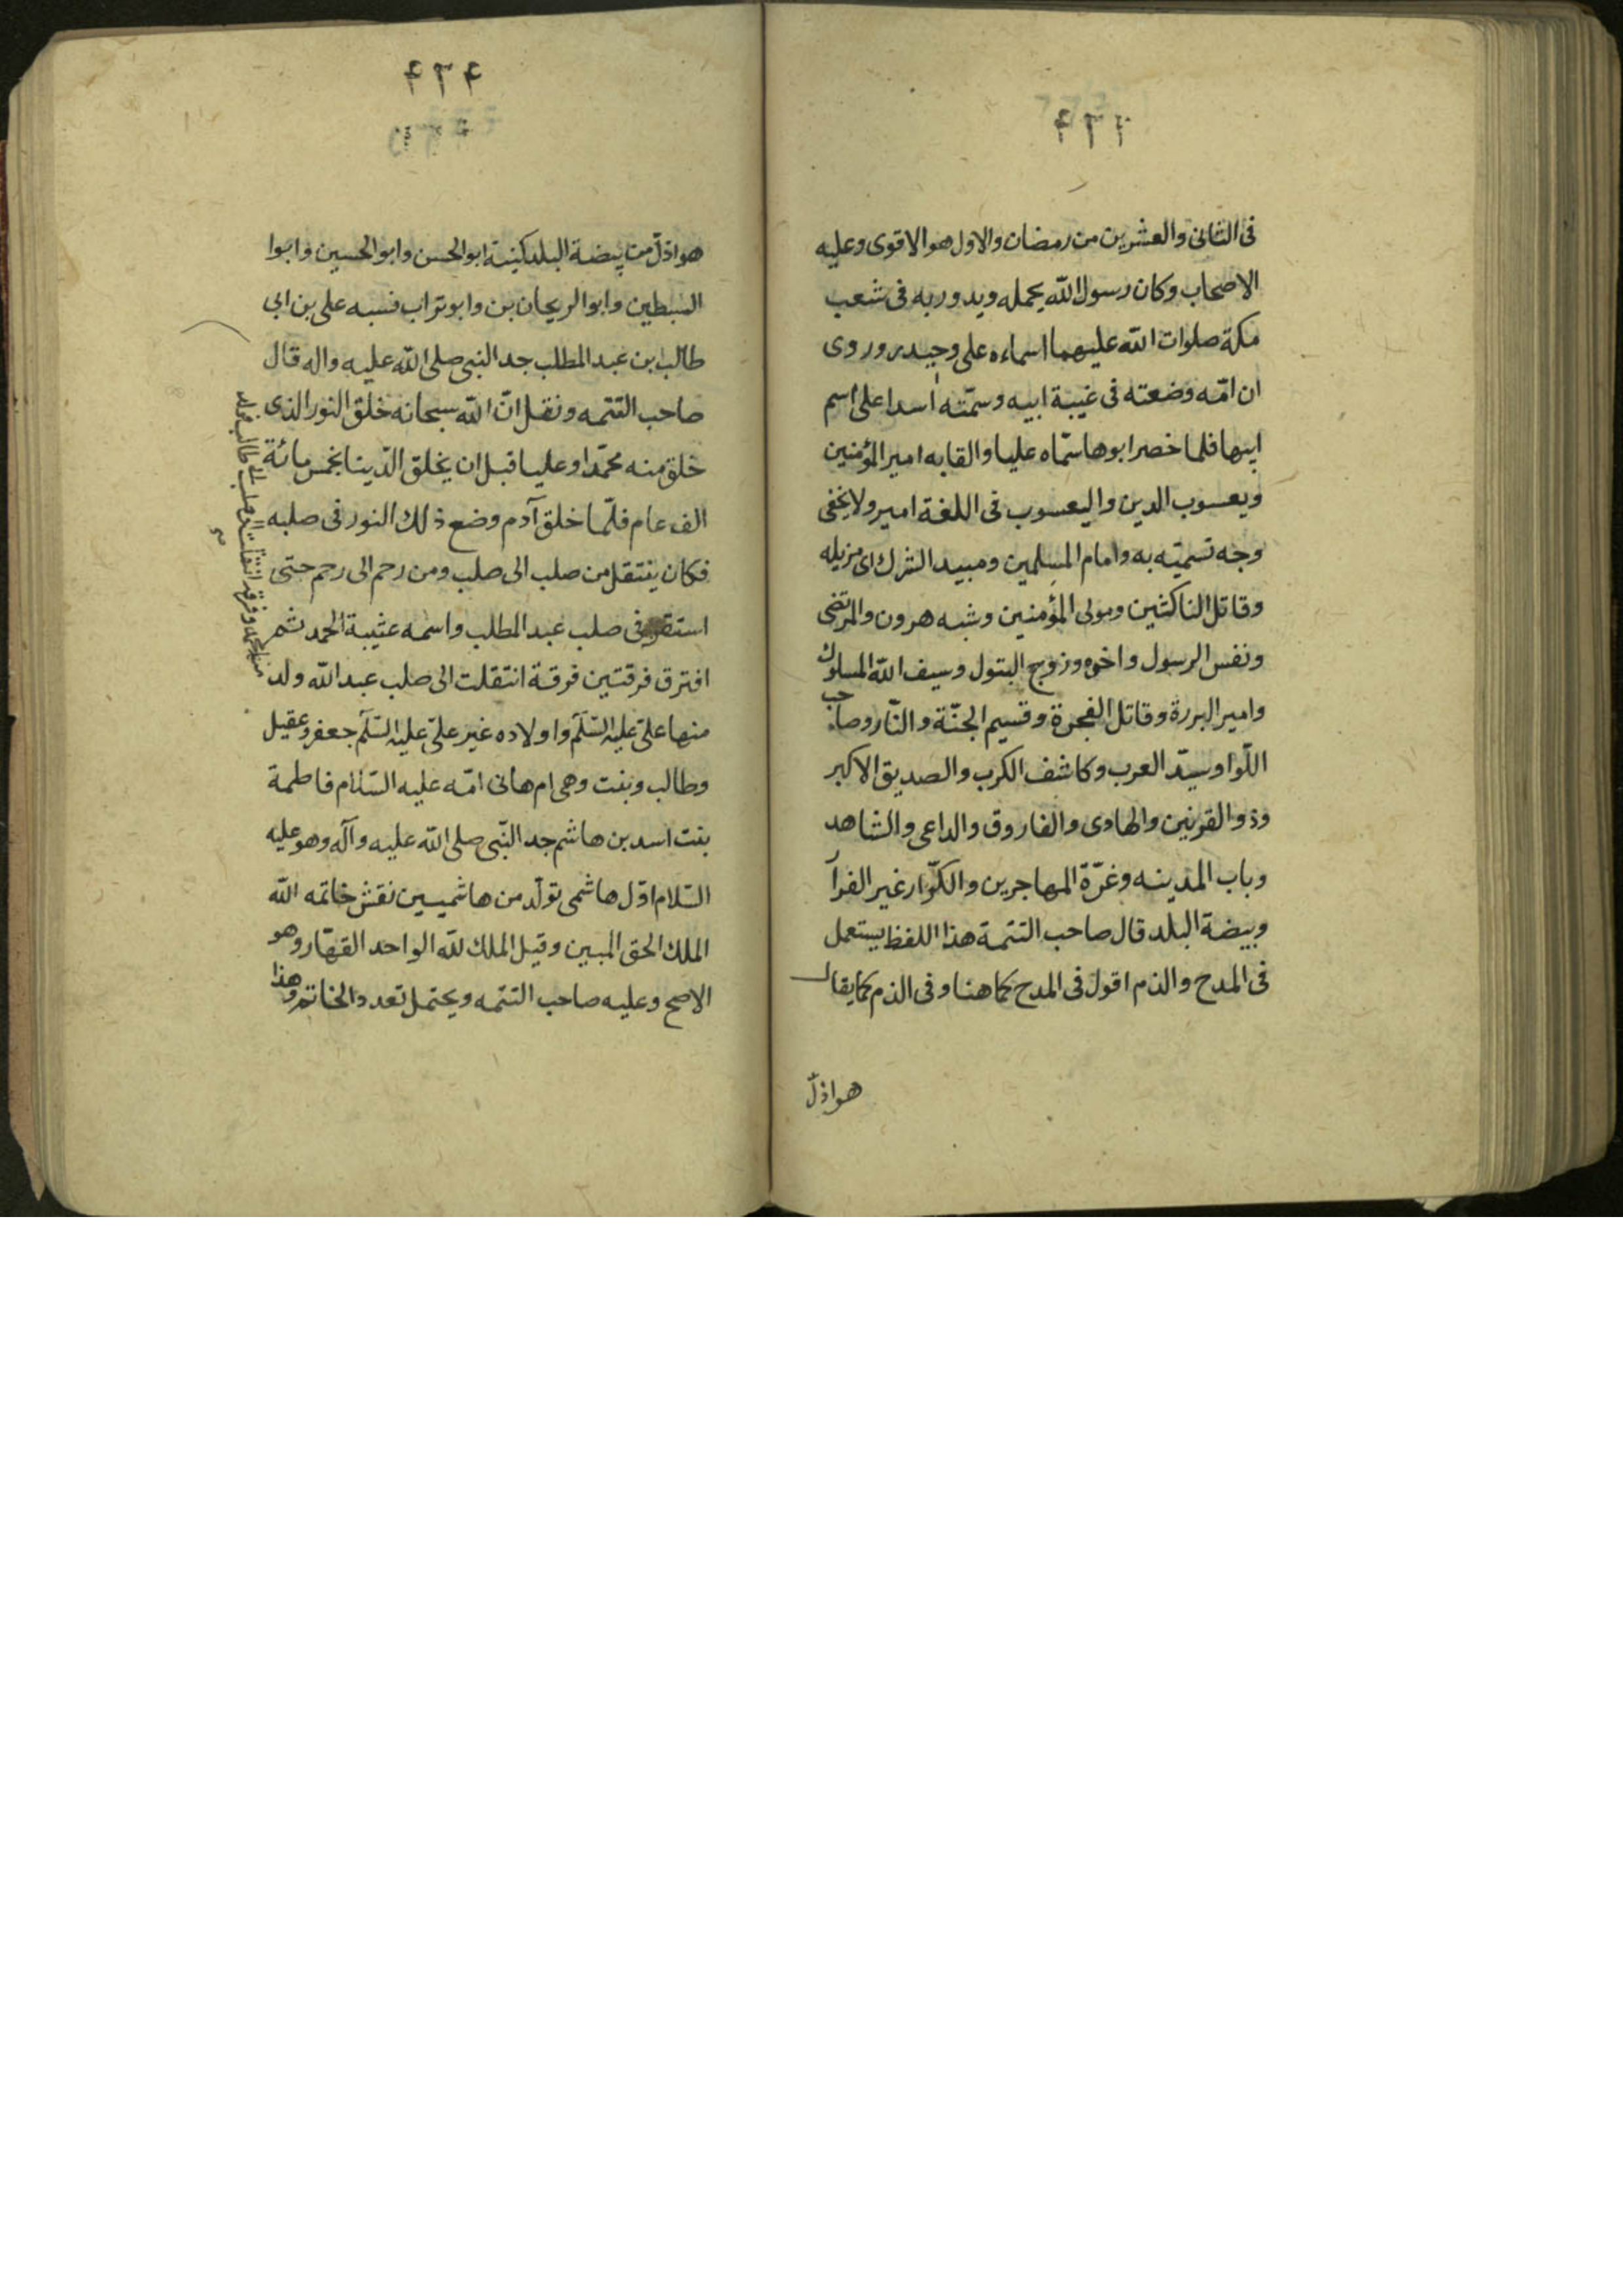 في الثاني والعشرين من رمضان والاول هو الاقوى وعليه
الاصحاب وكان رسول الله يحمله ويدور به في شعب
مكة صلوات الله عليهما اسماءه على وحيدر وروى
ان امّه وضعته في غيبة ابيه وسمّته اسدا على اسم
ابيها فلما حضر ابوها سمّاه عليا والقابه امير المؤمنين
ويعسوب الدين واليعسوب في اللغة امير ولا يخفى
وجه تسميته به وامام المسلمين ومبيد الشرك اى مزيله
وقاتل الناكثين ومولى المؤمنين وشبه هرون والمرتضى
ونفس الرسول واخوه وزوج البتول وسيف الله المسلول
وامير البررة وقاتل الفجرة وقسيم الجنّة والنّار وصاحب
اللّوا وسيّد العرب وكاشف الكرب والصديق الاكبر
وذو القرنين والهادى والفاروق والداعى والشاهد
وباب المدينه وغرّة المهاجرين والكرّار غير الفرآ
وبيضة البلد قال صاحب التتمة هذا اللفظ يستعمل
في المدح والذم اقول في المدح كما هنا وفي الذم كما يقال
هو اذلّ
هو اذلّ من بيضة البلد كنيته ابو الحسن وابو الحسين وابوا
السبطين وابو الريحانتين وابو تراب نسبه على بن ابى
طالب ابن عبد المطلب جد النبى صلى الله عليه واله قال
صاحب التتمه ونقل انّ الله سبحانه خلق النور الذى
خلق منه محمّدا وعليا قبل ان يخلق الدّينا بخمس مائة
الف عام فلمّا خلق آدم وضع ذلك النور في صلبه
فكان ينتقل من صلب الى صلب ومن رحم الى رحم حتى
استقر في صلب عبد المطلب واسمه عثيبة الحمد ثم
افترق فرقتين فرقة انتقلت الى صلب عبد الله ولد
منها علىّ عليه السّلم واولاده غير علىّ عليه السّلم جعفر وعقيل
وطالب وبنت وهى ام هانى امّه عليه السّلام فاطمة
بنت اسد بن هاشم جد النّبى صلى الله عليه وآله وهو عليه
السّلام اوّل هاشمى تولّد من هاشميين نقش خاتمه الله
الملك الحق المبين وقيل الملك لله الواحد القهّار وهو
الاصح وعليه صاحب التتمه ويحتمل تعدد الخاتم وهذا
منها محمد وفرقة انتقلت الى صلب ابى طالب فولد